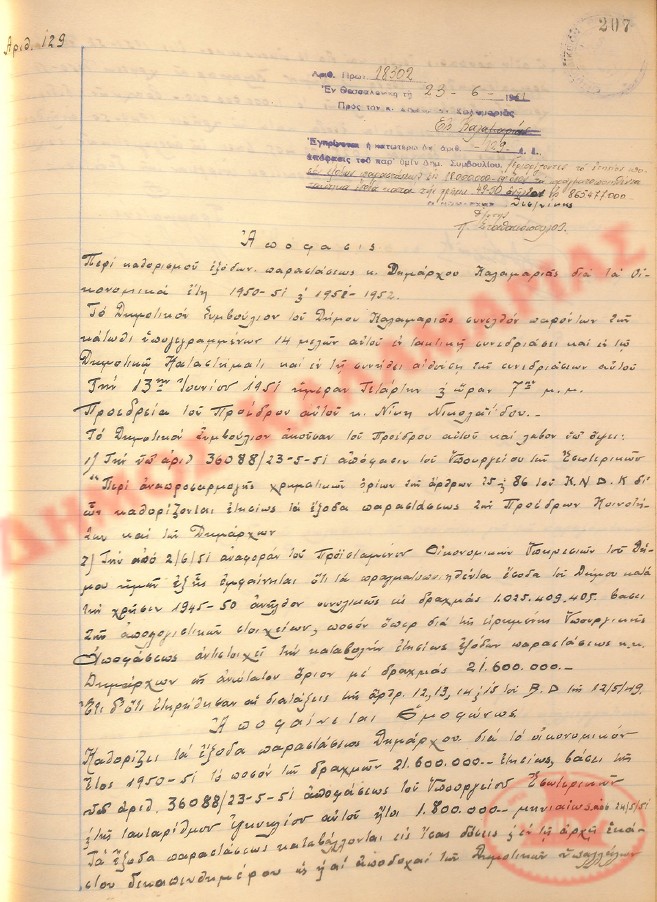 Αριθ. 129
207
Αριθ. Πρωτ. 18302
Ἐν Θεσσαλονίκῃ τῇ 23-6-1951
Πρὸς τὸν κ. Καλαμαριᾶς
Ἐν Καλαμαριᾷ
Ἐγκρίνεται ἡ κατωτέρω ὑπ' ἀριθ. 129
ἀπόφασις τοῦ παρ' ὑμῖν Δημ. Συμβουλίου.
18.000.000
ἔσοδα κατὰ τὴν χρῆσιν 49-50 865.477.000
Ἀπόφασις
Περὶ καθορισμοῦ ἐξόδων παραστάσεως κ. Δημάρχου Καλαμαριᾶς διὰ τὰ Οἰ-
κονομικὰ ἔτη 1950-51 & 1951-1952.
Τὸ Δημοτικὸν Συμβούλιον τοῦ Δήμου Καλαμαριᾶς συνελθὸν παρόντων τῶν
κάτωθι ὑπογεγραμμένων 14 μελῶν αὐτοῦ ἐν τακτικῇ συνεδριάσει καὶ ἐν τῷ
Δημοτικῷ Καταστήματι καὶ ἐν τῇ συνήθει αἰθούσῃ τῶν συνεδριάσεων αὐτοῦ
Τὴν 13ην Ἰουνίου 1951 ἡμέραν Τετάρτην & ὥραν 7ην μ.μ.
Προεδρεία τοῦ Προέδρου αὐτοῦ κ. Νίκη Νικολαΐδου.-
Τὸ Δημοτικὸν Συμβούλιον ἀκοῦσαν τοῦ Προέδρου αὐτοῦ καὶ λαβὸν ὑπ' ὄψει:
1) Τὴν ὑπ' ἀριθ. 36088/23-5-51 ἀπόφασιν τοῦ Ὑπουργείου τῶν Ἐσωτερικῶν
"Περὶ ἀναπροσαρμογῆς χρηματικῶν ὁρίων τῶν ἄρθρων 75 & 86 τοῦ Κ.Ν.Δ.Κ δι'
ὧν καθορίζονται ἐτησίως τὰ ἔξοδα παραστάσεως τῶν Προέδρων Κοινοτή-
των καὶ τῶν Δημάρχων
2) Τὴν ἀπὸ 2/6/51 ἀναφορὰν τοῦ Προϊσταμένου Οἰκονομικῶν Ὑπηρεσιῶν τοῦ Δή-
μου ἡμῶν ἐξ ἧς ἐμφαίνεται ὅτι τὰ πραγματοποιηθέντα ἔσοδα τοῦ Δήμου κατὰ
τὴν χρῆσιν 1945-50 ἀνῆλθον συνολικῶς εἰς δραχμὰς 1.025.409.405. βάσει
τῶν ἀπολογιστικῶν στοιχείων, ποσὸν ὅπερ διὰ τῆς εἰρημένης Ὑπουργικῆς
Ἀποφάσεως ἀντιστοιχεῖ τὴν καταβολὴν ἐτησίως ἐξόδων παραστάσεως κ.κ.
Δημάρχων ὡς ἀνώτατον ὅριον μὲ δραχμὰς 21.600.000.-
Ἔτι δ' ὅτι ἐτηρήθησαν αἱ διατάξεις τῶν ἄρθρ. 12, 13, 14 & 15 τοῦ Β.Δ τῆς 12/5/49.
Ἀποφαίνεται Ὁμοφώνως
Καθορίζει τὰ ἔξοδα παραστάσεως Δημάρχου διὰ τὸ οἰκονομικὸν
ἔτος 1950-51 τὸ ποσὸν τῶν δραχμῶν 21.600.000.- ἐτησίως, βάσει τῆς
ὑπ' ἀριθ. 36088/23-5-51 ἀποφάσεως τοῦ Ὑπουργείου Ἐσωτερικῶν
& τῆς ταυταρίθμου Ἐγκυκλίου αὐτοῦ ἤτοι 1.800.000.- μηνιαίως ἀπὸ 24/5/51
Τὰ ἔξοδα παραστάσεως καταβάλλονται εἰς ἴσας δόσεις & ἐν τῇ ἀρχῇ ἑκά-
στου δεκαπενθημέρου ὡς ἡ αἱ ἀποδοχαὶ τῶν Δημοτικῶν ὑπαλλήλων
ΔΗΜΟΣ ΚΑΛΑΜΑΡΙΑΣ